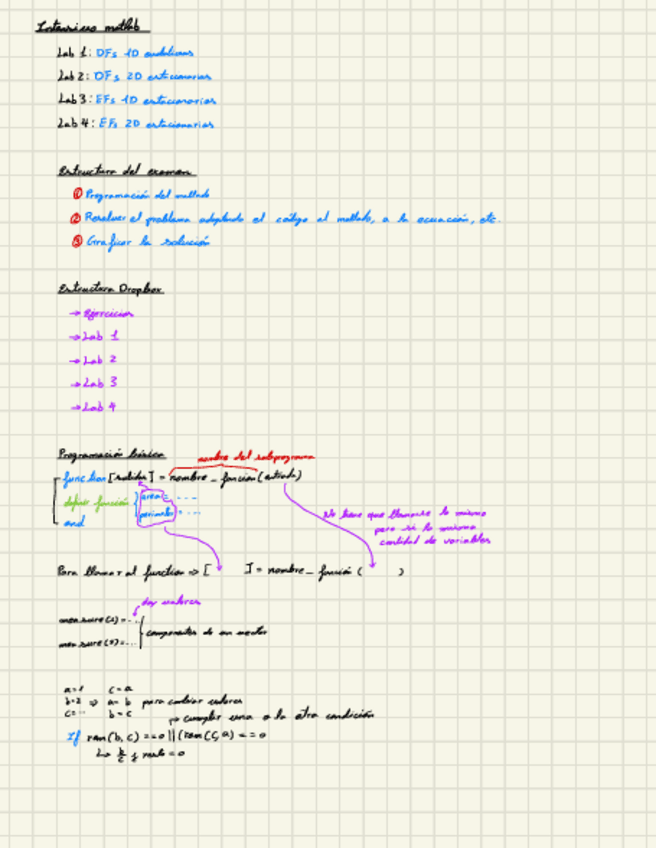 Intensivo matlab
Lab 1: DFs 1D
Lab 2: DFs 2D estacionarias
Lab 3: EFs 1D estacionarios
Lab 4: EFs 2D estacionarias
Estructura del examen
① Programación del método
② Resolver el problema adaptando el código al método, a la ecuación, etc.
③ Graficar la solución
Estructura Dropbox
→ Ejercicios
→ Lab 1
→ Lab 2
→ Lab 3
→ Lab 4
Programación básica
nombre del subprograma
function [salidas] = nombre_función (entrada)
definir función { area = ....
perímetro = ...
end
No tiene que llamarse lo mismo
pero si la misma
cantidad de variables
Para llamar al function => [ ] = nombre_función ( )
dos valores
measure(1) = ...
measure(2) = ...
componentes de un vector
a=1 c=a
b=2 => a=b para cambiar valores
c=... b=c
→ cumplir una o la otra condición
If rem(b,c) ==0 || (rem(c,a) ==0
↳ b/c y resto = 0